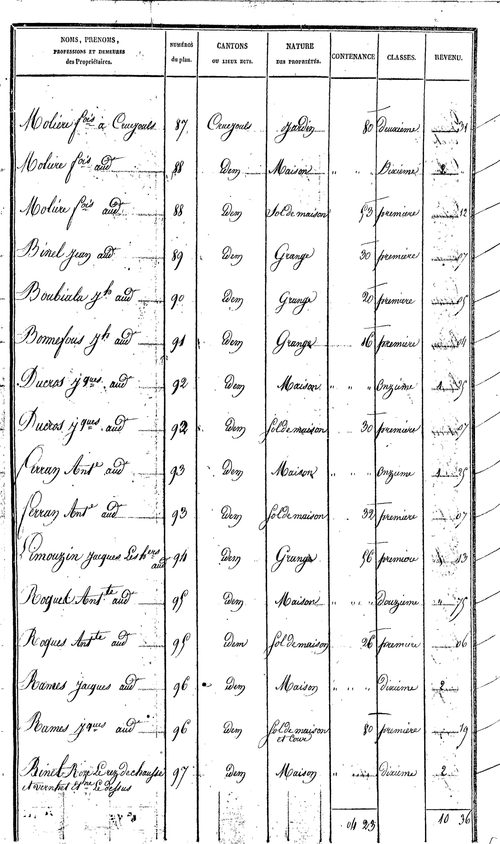 NOMS, PRENOMS, PROFESSIONS ET DEMEURES des Propriétaires. NUMÉROS du plan. CANTONS OU LIEUX DITS. NATURE DES PROPRIÉTÉS. CONTENANCE CLASSES. REVENU.
Molière fois à Cruejouls 87 Cruejouls Jardin 80 deuxième 31
Molière fois aud 88 idem Maison " " Dixième 2
Molière fois aud 88 idem Sol de maison 53 première 12
Binel Jean aud 89 idem Grange 30 première 07
Boubiala Jh aud 90 idem Grange 20 première 05
Bonnefous Jh aud 91 idem Grange 16 première 04
Ducros Jques aud 92 idem Maison " " Onzième 1 25
Ducros Jques aud 92 idem Sol de maison 30 première 07
Ferran Ante aud 93 idem Maison " " Onzième 1 25
Ferran Ante aud 93 idem Sol de maison 32 première 07
Limouzin Jacques Les hers aud 94 idem Grange 56 première 13
Roques Antte aud 95 idem Maison " " Douzième " 75
Roques Antte aud 95 idem Sol de maison 26 première 06
Rames Jacques aud 96 idem Maison " " Dixième 2
Rames Jques aud 96 idem Sol de maison et Cour 80 première 19
Binel Roze Le rez de chaussé 97 idem Maison " " dixième 2
et vernhet Etne Le dessus
04 23 10 36